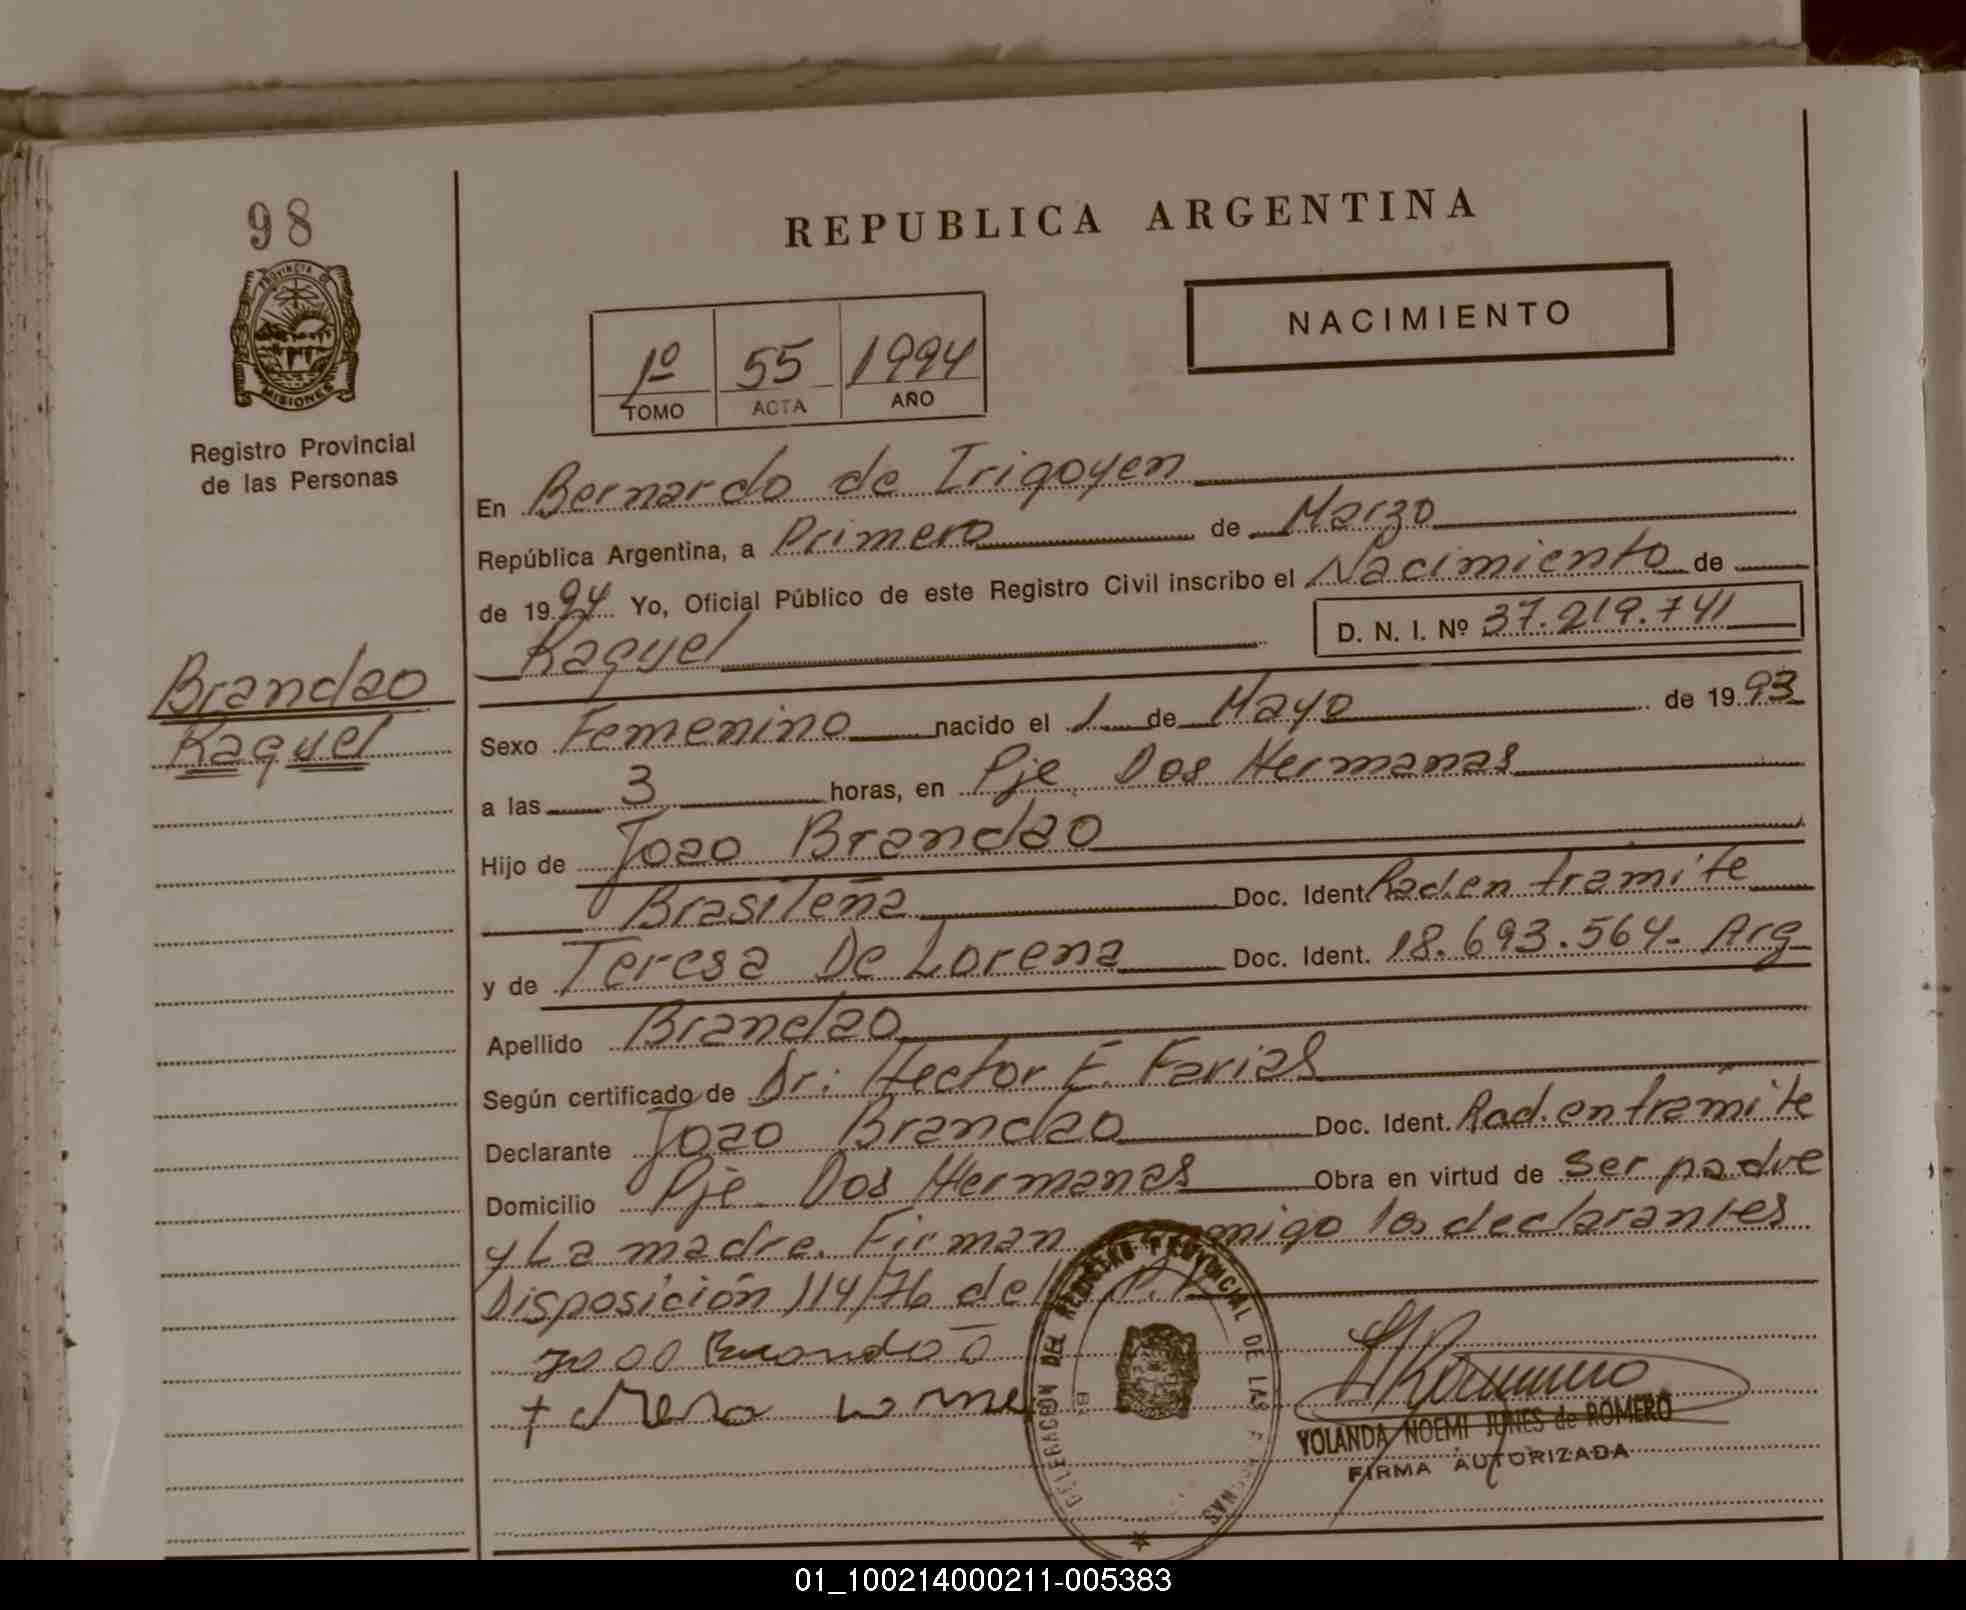 98
REPUBLICA ARGENTINA
PROVINCIA DE MISIONES
NACIMIENTO
1º 55 1994
TOMO ACTA AÑO
Registro Provincial
de las Personas
En Bernardo de Irigoyen
República Argentina, a Primero de Marzo
de 1994 Yo, Oficial Público de este Registro Civil inscribo el Nacimiento de
Raquel D. N. I. Nº 37.219.741
Brandao
Raquel
Sexo Femenino nacido el 1 de Mayo de 1993
a las 3 horas, en Pje Dos Hermanas
Hijo de Joao Brandao
Brasileña Doc. Ident. Rad. en tramite
y de Teresa De Lorena Doc. Ident. 18.693.564- Arg
Apellido Brandao
Según certificado de Dr: Hector E. Farias
Declarante Joao Brandao Doc. Ident. Rad. en tramite
Domicilio Pje Dos Hermanas Obra en virtud de ser padre
y La madre. Firman conmigo los declarantes
Disposición 114/76 del R.P.P.
Joao Brandão
YOLANDA NOEMI JUNES de ROMERO
FIRMA AUTORIZADA
DELEGACION DEL REGISTRO PROVINCIAL DE LAS PERSONAS
01_100214000211-005383